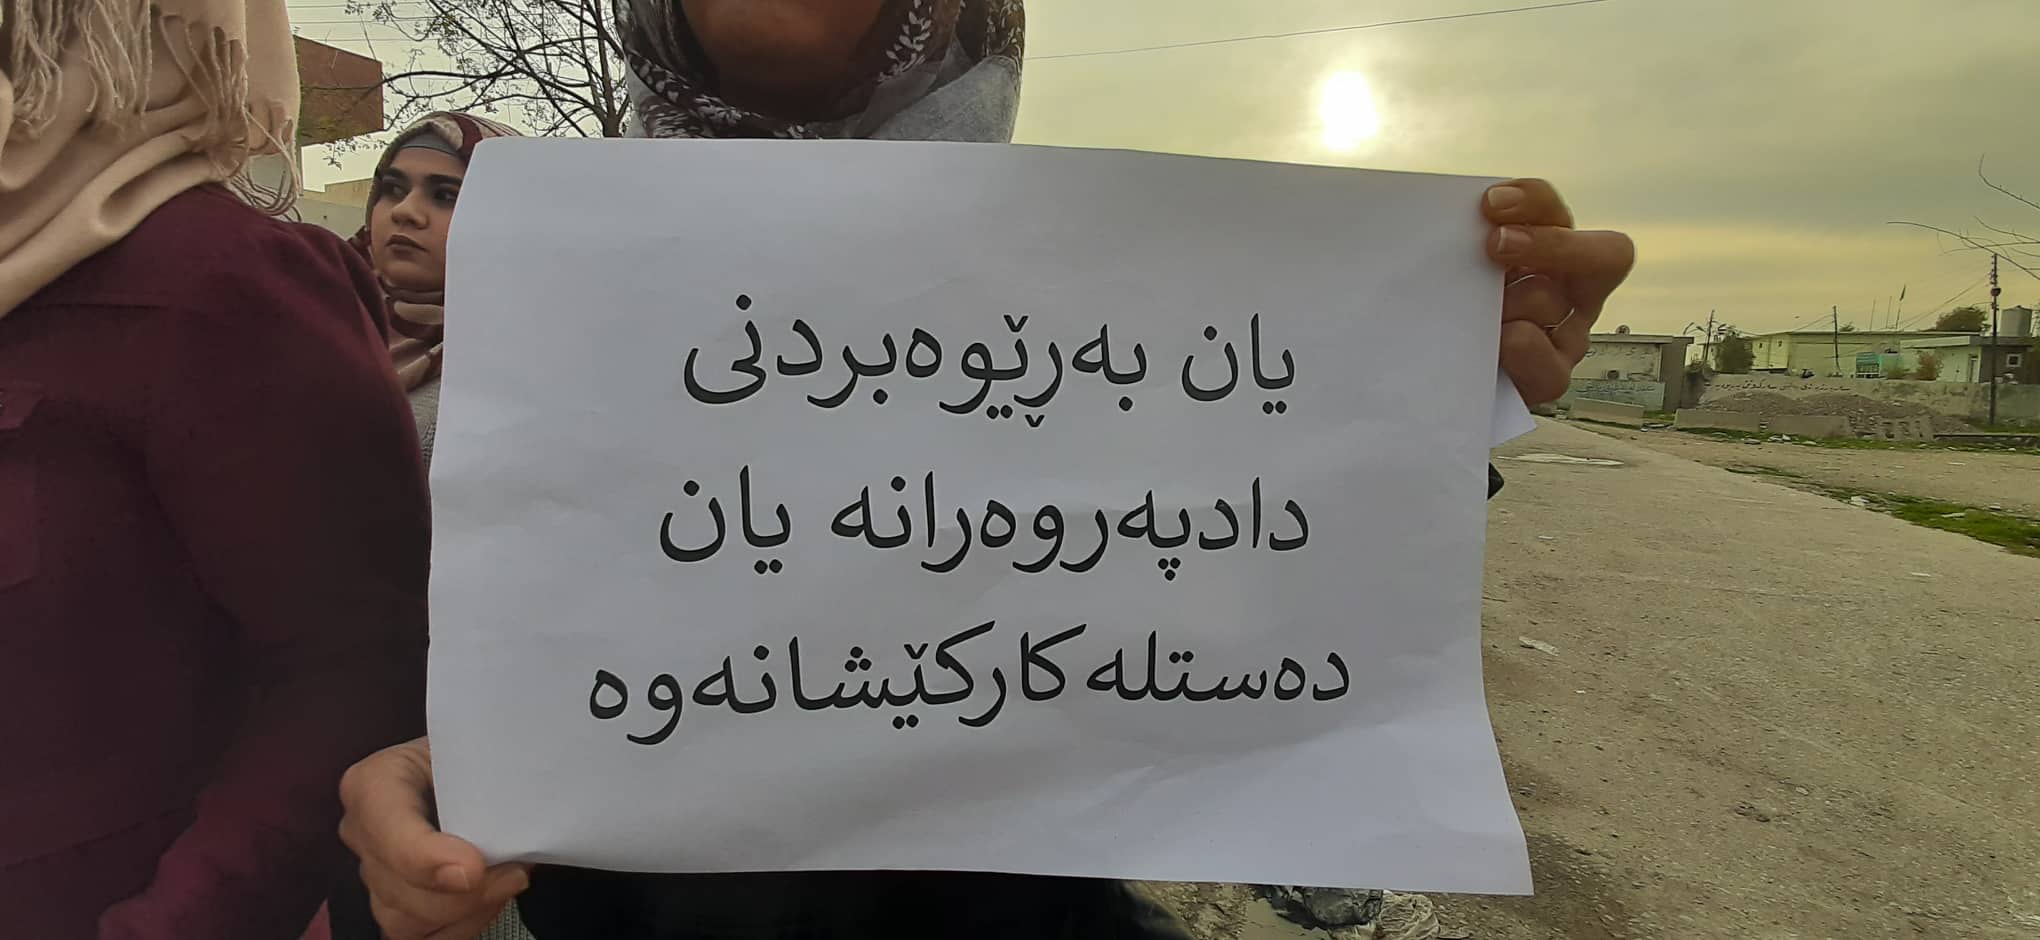 یان بەڕێوەبردنی
دادپەروەرانە یان
دەستلەکارکێشانەوە